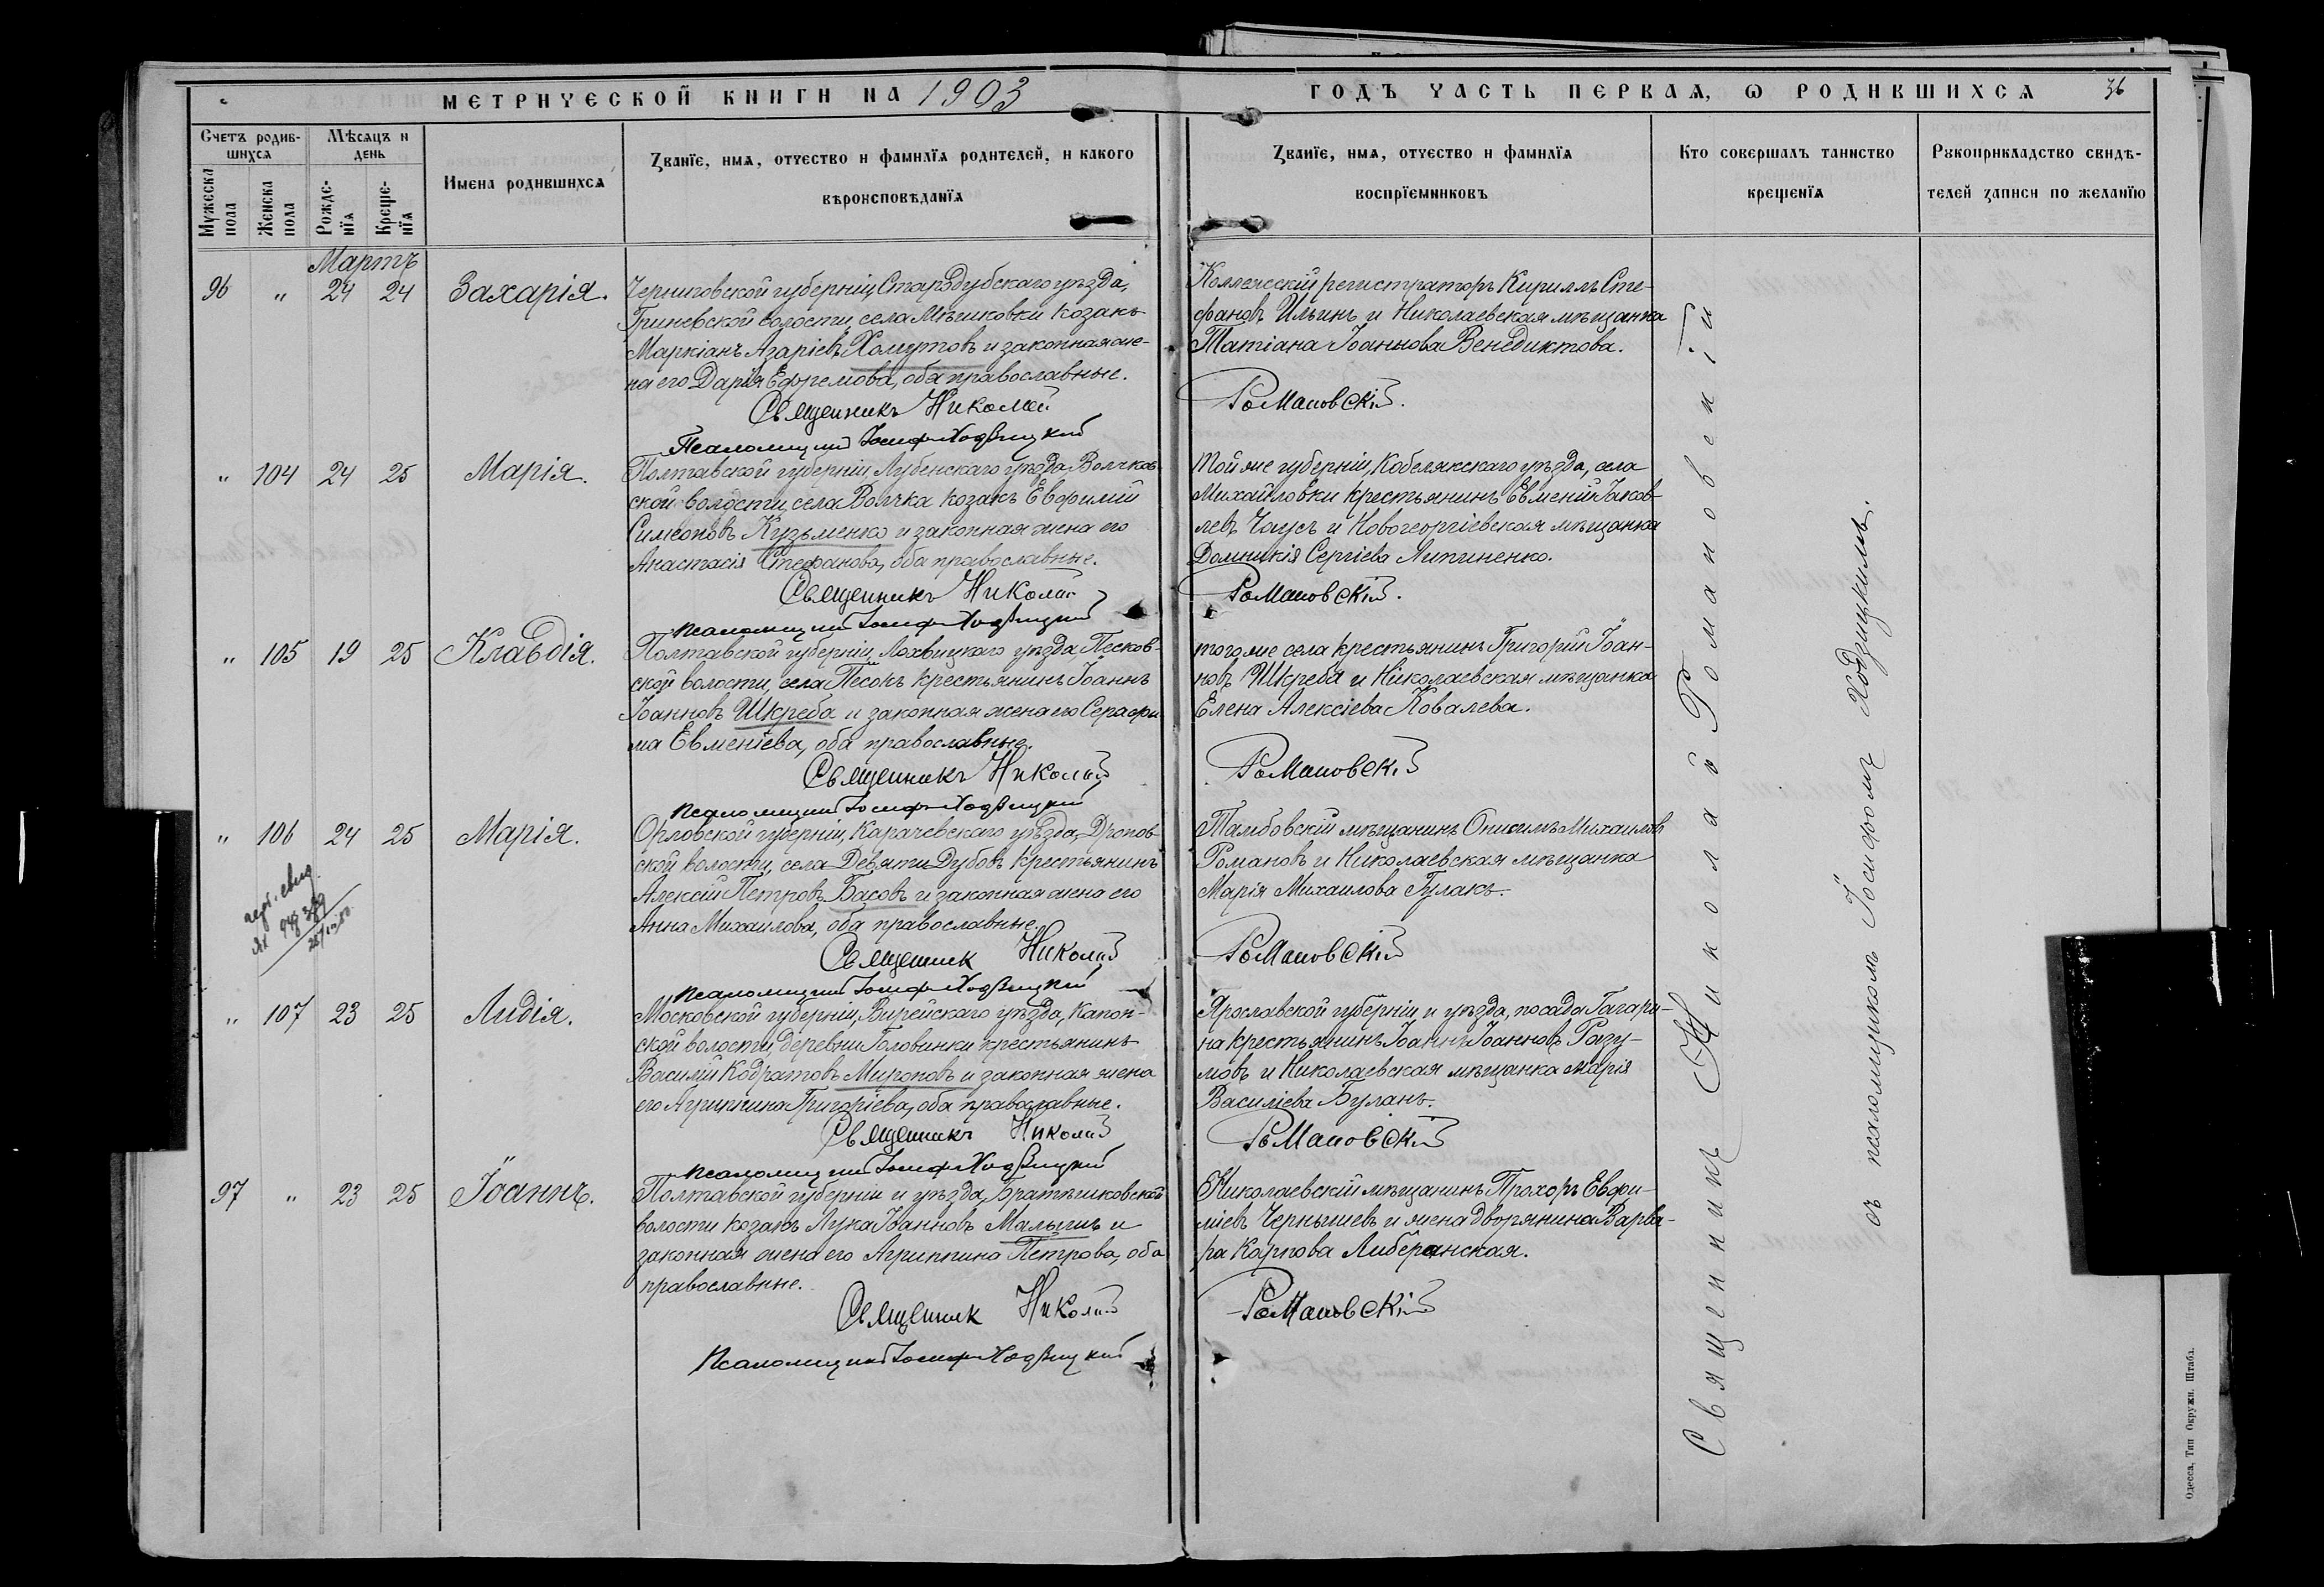 МЕТРИЧЕСКОЙ КНИГИ НА 1903
ГОДЪ ЧАСТЬ ПЕРВАЯ, Ѡ РОДИВШИХСЯ
36
Счетъ родив-
шихся
Мѣсяцъ и
день
Мужеска
пола
Женска
пола
Рожде-
нїя
Креще-
нїя
Имена родившихся
Званїе, имя, отчество и фамилїя родителей, и какого
вѣроисповѣданїя
Званїе, имя, отчество и фамилїя
воспрїемниковъ
Кто совершалъ таинство
крещенїя
Рꙋкоприкладство свидѣ-
телей записи по желанїю
Мартъ
96 " 24 24 Захарія.
Черниговской губерніи Стародубскаго уѣзда,
Гриневской волости, села Мѣшковки козакъ
Маркіанъ Азаріевъ Хомутовъ и законная же-
на его Дарія Ефремова, оба православные.
Коллежскій регистраторъ Кириллъ Сте-
фановъ Ильинъ и Николаевская мѣщанка
Татіана Іоаннова Венедиктова.
Священникъ Николай Романовскій.
Псаломщикъ Іосифъ Ходзицкій
" 104 24 25 Марія.
Полтавской губерніи Лубенскаго уѣзда, Волчков-
ской волости, села Волчка козакъ Евфимій
Симеоновъ Кузьменко и законная жена его
Анастасія Стефанова, оба православные.
Той же губерніи, Кобелякскаго уѣзда, села
Михайловки крестьянинъ Евменій Іаков-
левъ Чаусъ и Новогеоргіевская мѣщанка
Домникія Сергіева Литиненко.
Священникъ Николай Романовскій.
Псаломщикъ Іосифъ Ходзицкій
" 105 19 25 Клавдія.
Полтавской губерніи, Лохвицкаго уѣзда, Песков-
ской волости, села Песокъ крестьянинъ Іоаннъ
Іоанновъ Шкреба и законная жена его Серафи-
ма Евменіева, оба православные.
того же села крестьянинъ Григорій Іоан-
новъ Шкреба и Николаевская мѣщанка
Елена Алексіева Ковалева.
Священникъ Николай Романовскій
Псаломщикъ Іосифъ Ходзицкій
" 106 24 25 Марія.
Орловской губерніи, Карачевскаго уѣзда, Дронов-
ской волости, села Девяти Дубовъ крестьянинъ
Алексій Петровъ Басовъ и законная жена его
Анна Михаилова, оба православные.
Тамбовскій мѣщанинъ Онисимъ Михаиловъ
Романовъ и Николаевская мѣщанка
Марія Михаилова Гулакъ.
Священник Николай Романовскій
Псаломщикъ Іосифъ Ходзицкій
" 107 23 25 Лидія.
Московской губерніи, Вирейскаго уѣзда, Капон-
ской волости, деревни Головинки крестьянинъ
Василій Кодратовъ Мироновъ и законная жена
его Агриппина Григоріева, оба православные.
Ярославской губерніи и уѣзда, посада Гагари-
на крестьянинъ Іоаннъ Іоанновъ Разу-
мовъ и Николаевская мѣщанка Марія
Василіева Буланъ.
Священникъ Николай Романовскій
Псаломщикъ Іосифъ Ходзицкій
97 " 23 25 Іоаннъ.
Полтавской губерніи и уѣзда, Братешковской
волости козакъ Лука Іоанновъ Малышъ и
законная жена его Агриппина Петрова, оба
православные.
Николаевскій мѣщанинъ Прохоръ Евфи-
міевъ Чернышевъ и жена дворянина Варва-
ра Карпова Либеранская.
Священник Николай Романовскій
Псаломщикъ Іосифъ Ходзицкій
Священникъ Николай Романовскій
съ псаломщикомъ Іосифомъ Ходзицкимъ.
Одесса, Тип Окружн. Штаба.